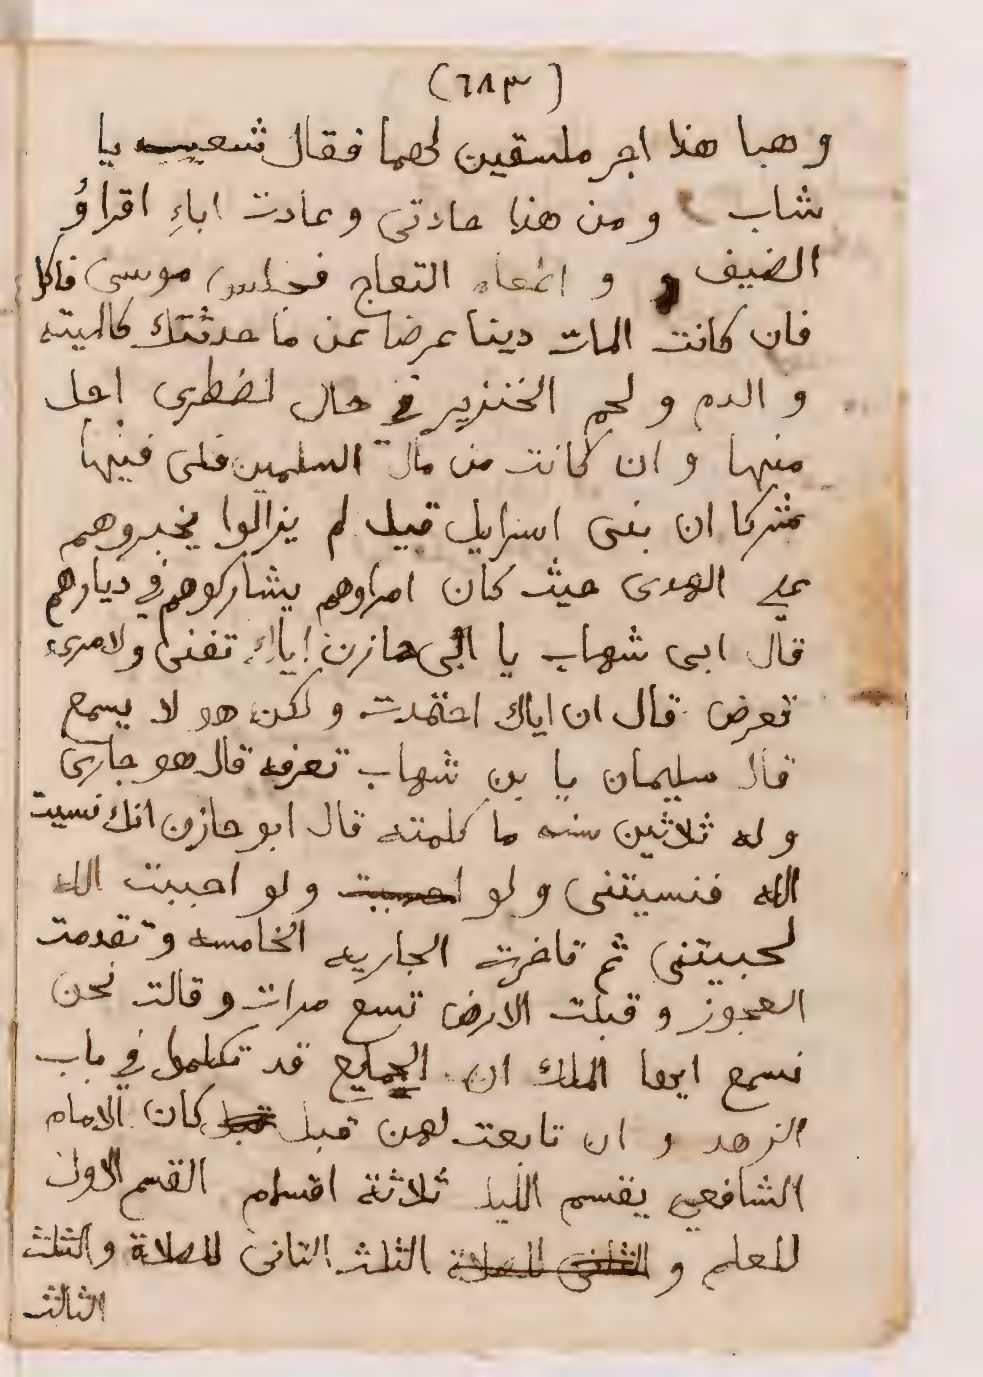 (٦٨٣)
وهبا هذا اجر ملسقين لهما فقال شعيب يا
شاب ومن هذا عادتى وعادت اباءِ اقراؤُ
الضيف و اطعام التعاج فجلس موسى فاكل
فان كانت المات دينا عرضا عن ما حدثتك كالميته
و الدم و لحم الخنزير فى حال لضطرى احل
منها و ان كانت من مال السلمين فلى فيها
شركا ان بنى اسرايل قبل لم يزالوا يخبروهم
على الهدى حيث كان امراوهم يشاركوهم فى ديارهم
قال ابى شهاب يا ابى حازن اياك تفنى ولامرى
تعرض قال ان اياك اعتمدت و لكن هو لا يسمع
قال سليمان يا بن شهاب تعرفه قال هو جارى
و له ثلاثين سنه ما كلمته قال ابو حازن انك نسيت
الله فنسيتنى و لو احببت و لو احببت الله
لحبيتنى ثم تاخرت الجاريه الخامسه و تقدمت
العجوز و قبلت الارض تسع مرات و قالت نحن
نسمع ايها الملك ان الجميع قد تكلموا فى باب
الزهد و ان تابعت لهن قبل كان الامام
الشافعى يقسم الليل ثلاثة اقسام القسم الاول
للعلم و الثلثى للصلاة الثلث الثانى للصلاة والثلث
الثالث